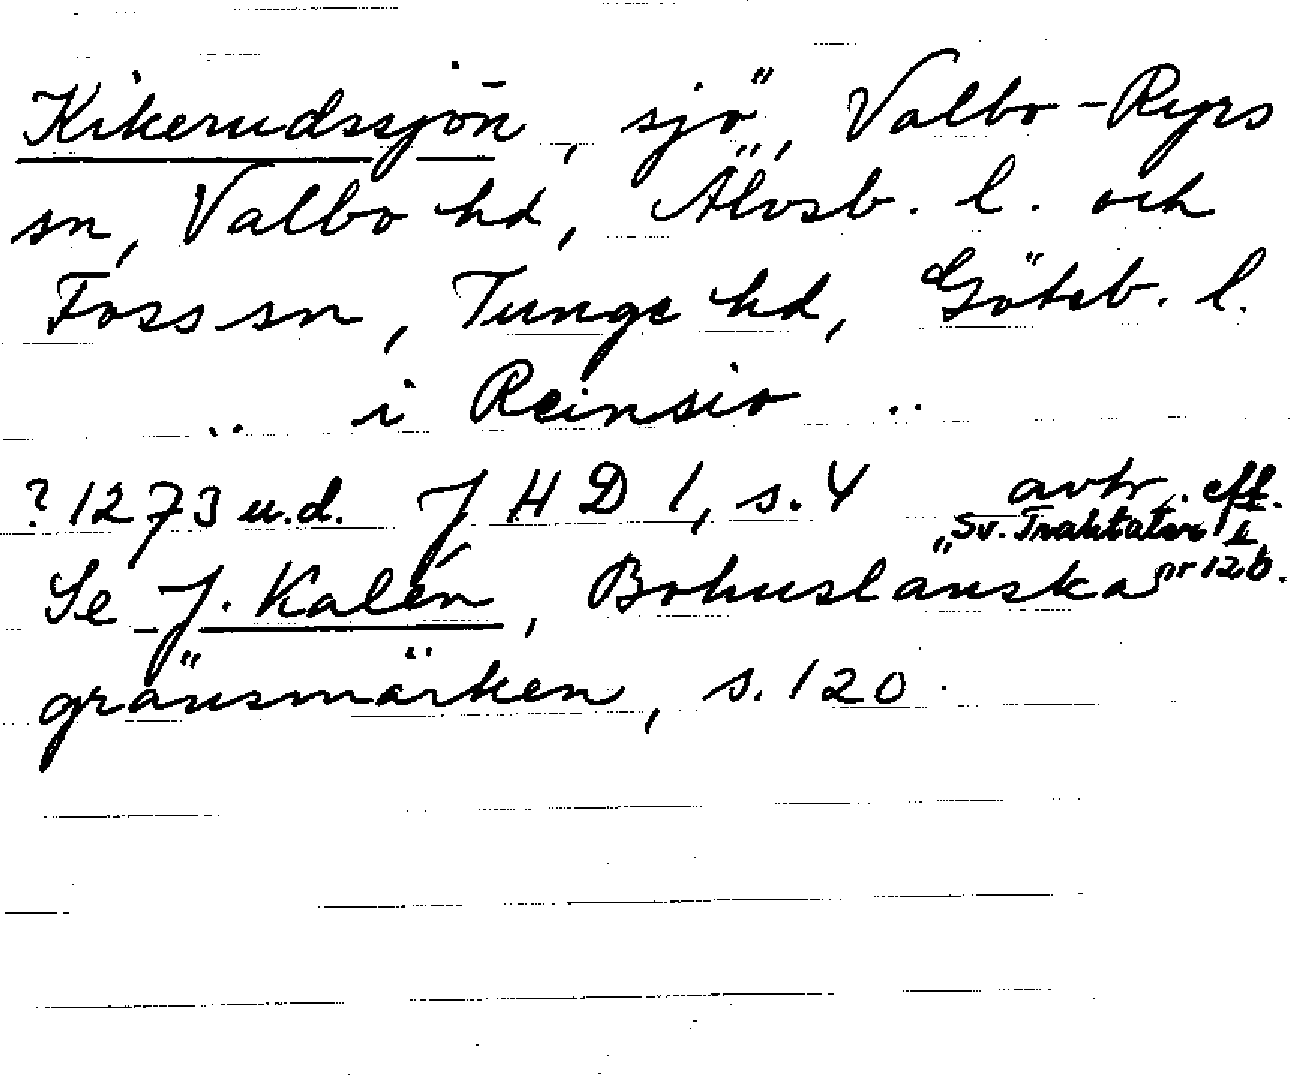 Kikerudssjön, sjö, Valbo-Ryrs
sn, Valbo hd, Älvsb. l. och
Foss sn, Tunge hd, Göteb. l.
.. i Reinsio ..
? 1273 u.d. JHD 1, s. 4 avtr. eft.
"Sv. Traktater I
nr 126.
Se J. Kalén, Bohuslänska
gränsmärken, s. 120